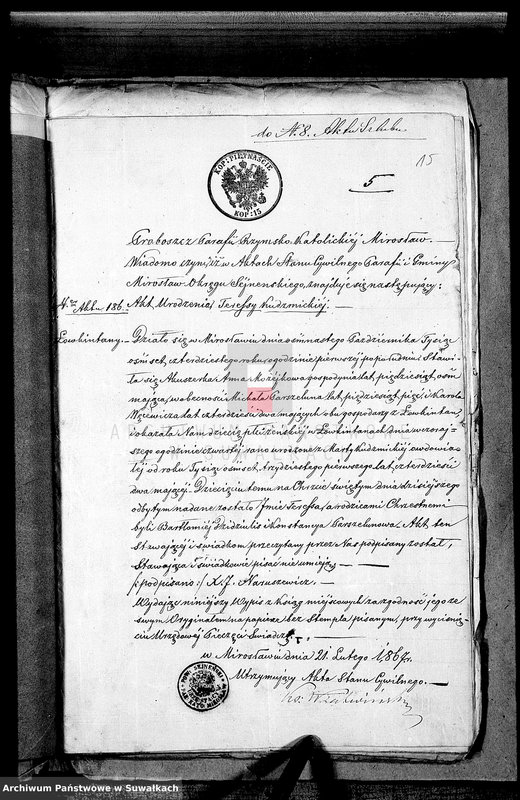 do N. 8. Aktu Szlubu
15
KOP: PIĘTNAŚCIE
KOP: 15
5
Proboszcz Parafii Rzymsko Katolickiéj Mirosław. —
Wiadomo czyni, iż w Aktach Stanu Cywilnego Parafii i Gminy
Mirosław Okręgu Sejneńskiego, znajduje się następujący:
N. Aktu 186. Akt Urodzenia Teressy Kudzmickiéj. —
Lowkintany. — Działo się w Mirosławiu dnia ośmnastego Października Tysiąc
ośmset czterdziestego roku, o godzinie pierwszéj popołudniu. Stawi-
ła się Akuszerka Anna Możejkowa gospodyni lat pięćdziesiąt ośm
mająca, w obecności Michała Parszeluna, lat pięćdziesiąt pięć, i Karola
lat czterdzieści dwa mających, obu gospodarzy z Lowkintan,
i okazała Nam dziecię płci żeńskiéj w Lowkintanach dnia wczoraj-
szego o godzinie czwartéj rano urodzone z Marty Kudzmickiéj owdowia-
łéj od roku Tysiąc ośmset trzydziestego pierwszego, lat czterdzieści
dwa mającéj. — Dziecięciu temu na Chrzcie świętym dnia dzisiejszego
odbytym nadane zostało Imie Teressa, a rodzicami Chrzestnemi
byli Bartłomiéj i Konstancya Parszelunowa. Akt ten
Stawającéj i świadkom przeczytany przez Nas podpisany został,
Stawająca i świadkowie pisać nie umieją. — —
/: podpisano :/ X. J. Naruszewicz. —
Wydając niniejszy Wypis z Ksiąg miejscowych za zgodność jego ze
swym Oryginałem na papierze bez Stempla pisanym, przy wyciśnię-
ciu Urzędowéj Pieczęci świadczę. —
w Mirosławiu dnia 21. Lutego 1869 r.
Utrzymujący Akta Stanu Cywilnego. —
Archiwum Państwowe w Suwałkach